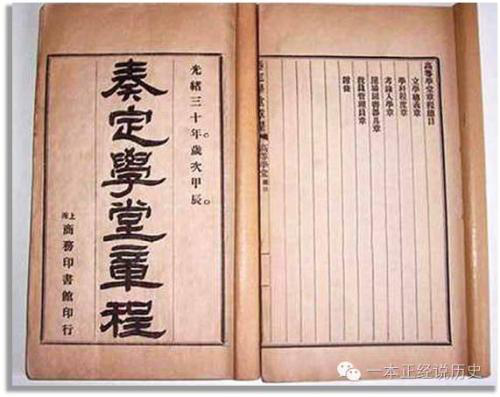 光緒三十年歲次甲辰
奏定學堂章程
上海
商務印書館印行
高等學堂章程總目
立學總義章
學科程度章
考錄入學章
屋場圖書器具章
教員管理員章
附條
高等學堂
一本正经说历史